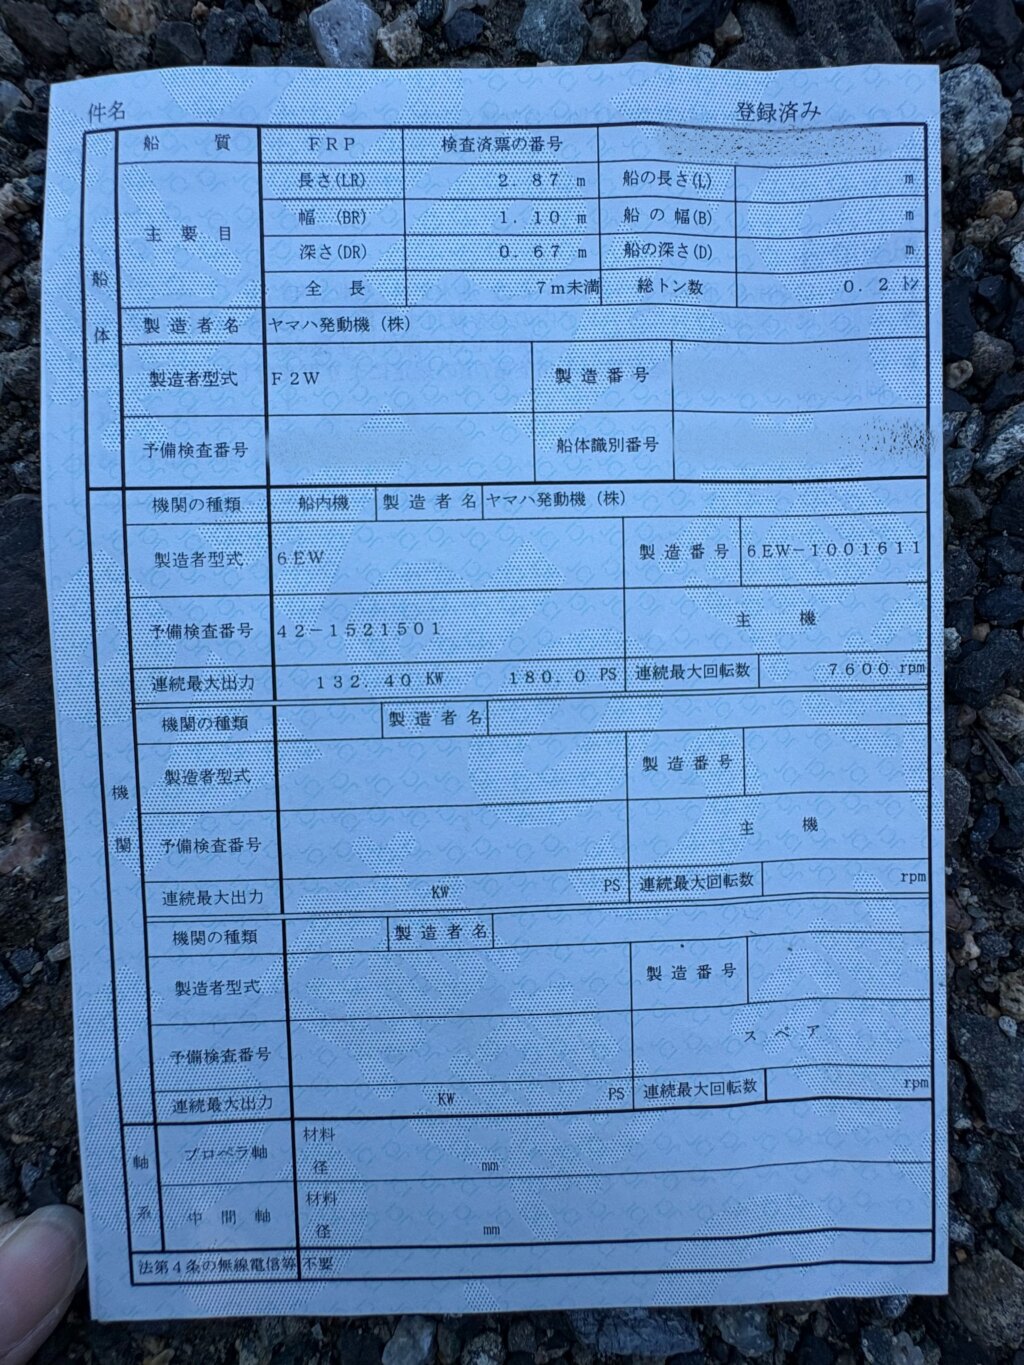 件名 登録済み
船体 船質 FRP 検査済票の番号
主要目 長さ(LR) 2.87 m 船の長さ(L) m
幅 (BR) 1.10 m 船の幅(B) m
深さ(DR) 0.67 m 船の深さ(D) m
全長 7m未満 総トン数 0.2 トン
製造者名 ヤマハ発動機(株)
製造者型式 F2W 製造番号
予備検査番号 船体識別番号
機関 機関の種類 船内機 製造者名 ヤマハ発動機(株)
製造者型式 6EW 製造番号 6EW-1001611
予備検査番号 42-1521501 主機
連続最大出力 132.40 KW 180.0 PS 連続最大回転数 7600 rpm
機関の種類 製造者名
製造者型式 製造番号
予備検査番号 主機
連続最大出力 KW PS 連続最大回転数 rpm
機関の種類 製造者名
製造者型式 製造番号
予備検査番号 スペア
連続最大出力 KW PS 連続最大回転数 rpm
軸系 プロペラ軸 材料
径 mm
中間軸 材料
径 mm
法第4条の無線電信等 不要